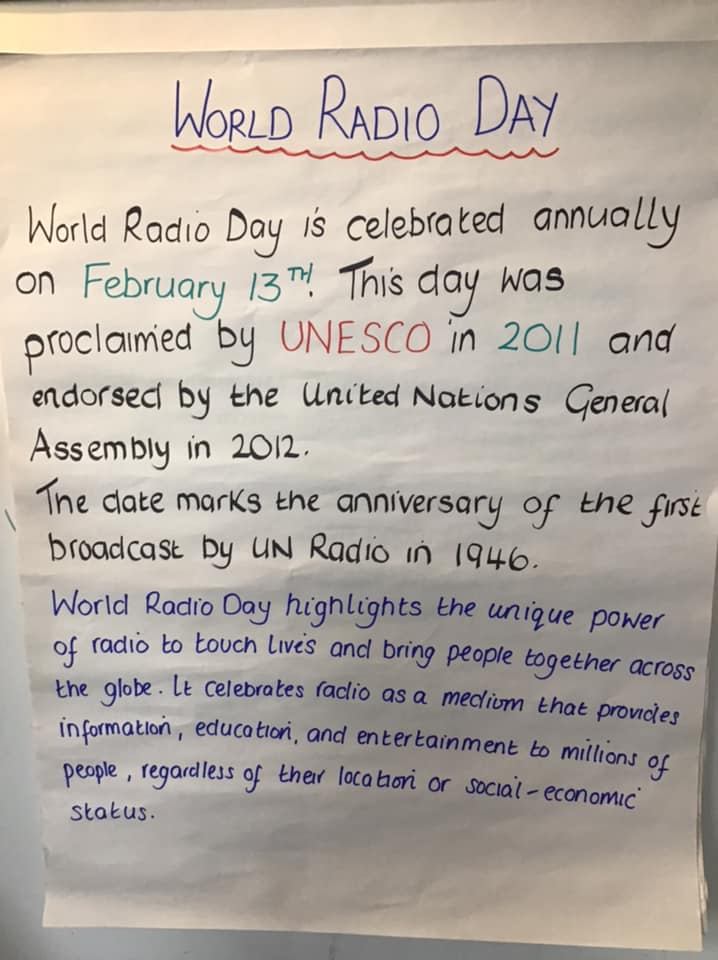 WORLD RADIO DAY
World Radio Day is celebrated annually
on February 13TH. This day was
proclaimed by UNESCO in 2011 and
endorsed by the United Nations General
Assembly in 2012.
The date marks the anniversary of the first
broadcast by UN Radio in 1946.
World Radio Day highlights the unique power
of radio to touch lives and bring people together across
the globe. It celebrates radio as a medium that provides
information, education, and entertainment to millions of
people, regardless of their location or social-economic
status.